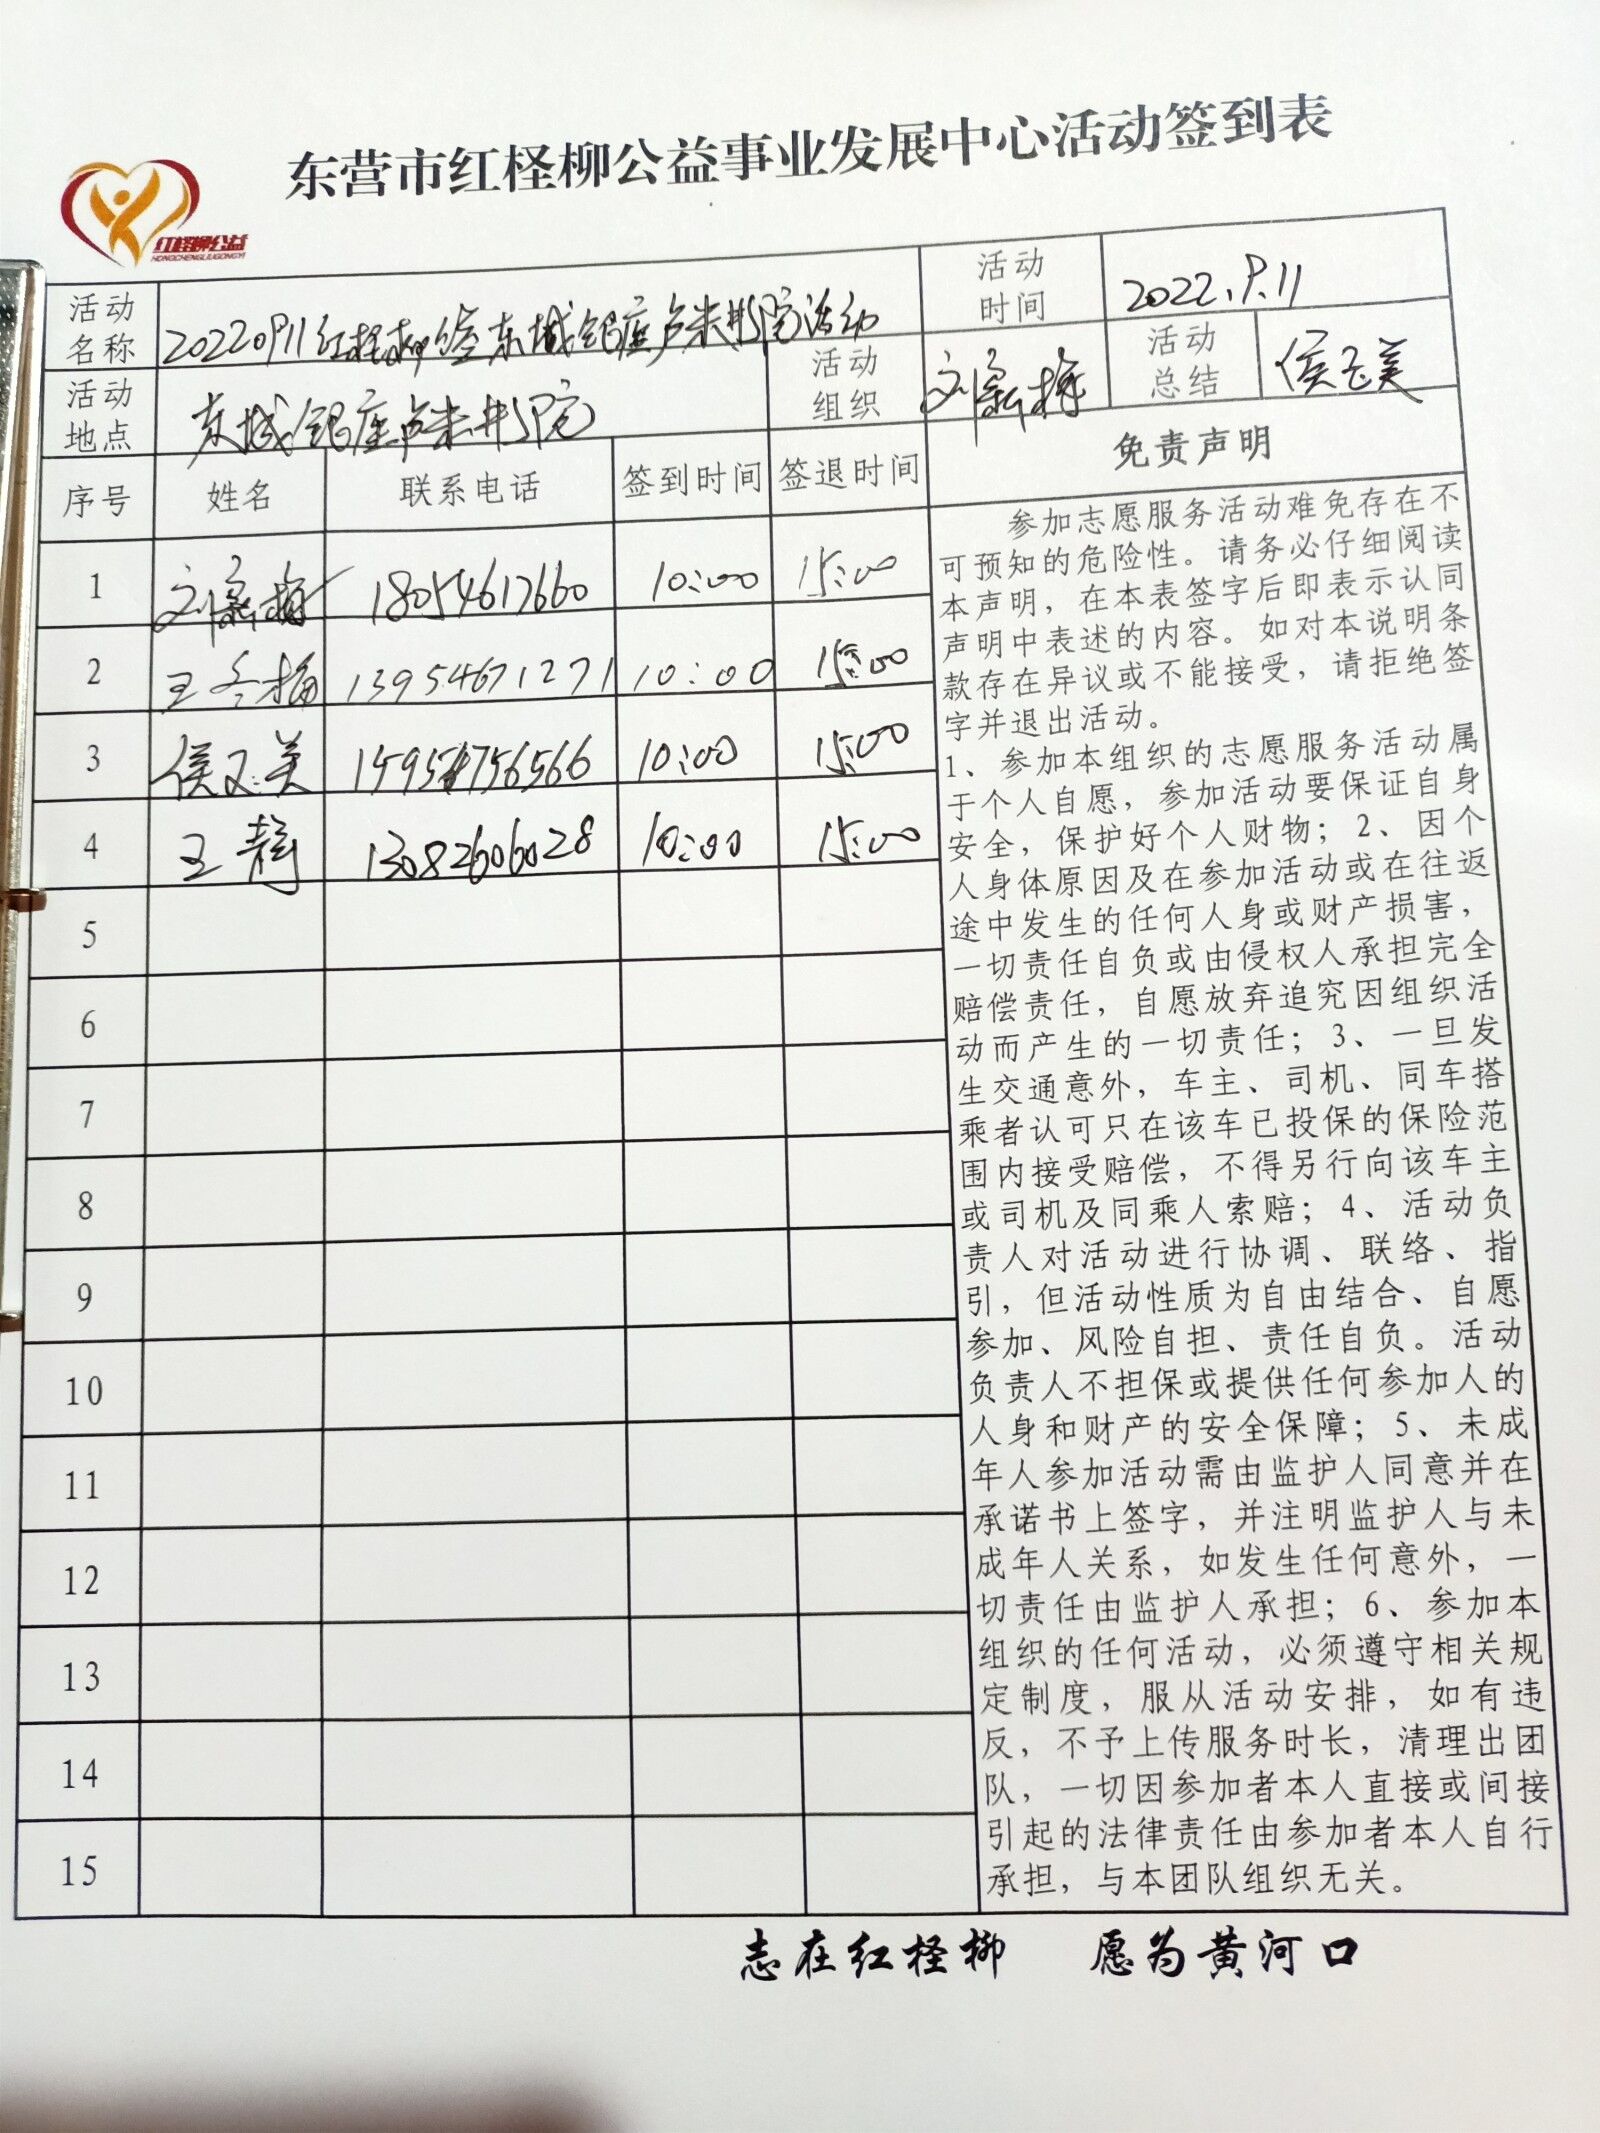 东营市红柽柳公益事业发展中心活动签到表
红柽柳公益
HONGCHENGLIUGONGYI
活动名称 20220911红柽柳 东城银座卢米书院活动 活动时间 2022.9.11
活动地点 东城银座卢米书院 活动组织 刘 梅 活动总结 侯玉美
序号 姓名 联系电话 签到时间 签退时间 免责声明
1 刘 梅 18054617660 10:00 15:00
2 王冬梅 13954671271 10:00 15:00
3 侯玉美 10:00 15:00
4 王静 13082606028 10:00 15:00
5
6
7
8
9
10
11
12
13
14
15
参加志愿服务活动难免存在不
可预知的危险性。请务必仔细阅读
本声明，在本表签字后即表示认同
声明中表述的内容。如对本说明条
款存在异议或不能接受，请拒绝签
字并退出活动。
1、参加本组织的志愿服务活动属
于个人自愿，参加活动要保证自身
安全，保护好个人财物；2、因个
人身体原因及在参加活动或在往返
途中发生的任何人身或财产损害，
一切责任自负或由侵权人承担完全
赔偿责任，自愿放弃追究因组织活
动而产生的一切责任；3、一旦发
生交通意外，车主、司机、同车搭
乘者认可只在该车已投保的保险范
围内接受赔偿，不得另行向该车主
或司机及同乘人索赔；4、活动负
责人对活动进行协调、联络、指
引，但活动性质为自由结合、自愿
参加、风险自担、责任自负。活动
负责人不担保或提供任何参加人的
人身和财产的安全保障；5、未成
年人参加活动需由监护人同意并在
承诺书上签字，并注明监护人与未
成年人关系，如发生任何意外，一
切责任由监护人承担；6、参加本
组织的任何活动，必须遵守相关规
定制度，服从活动安排，如有违
反，不予上传服务时长，清理出团
队，一切因参加者本人直接或间接
引起的法律责任由参加者本人自行
承担，与本团队组织无关。
志在红柽柳 愿为黄河口